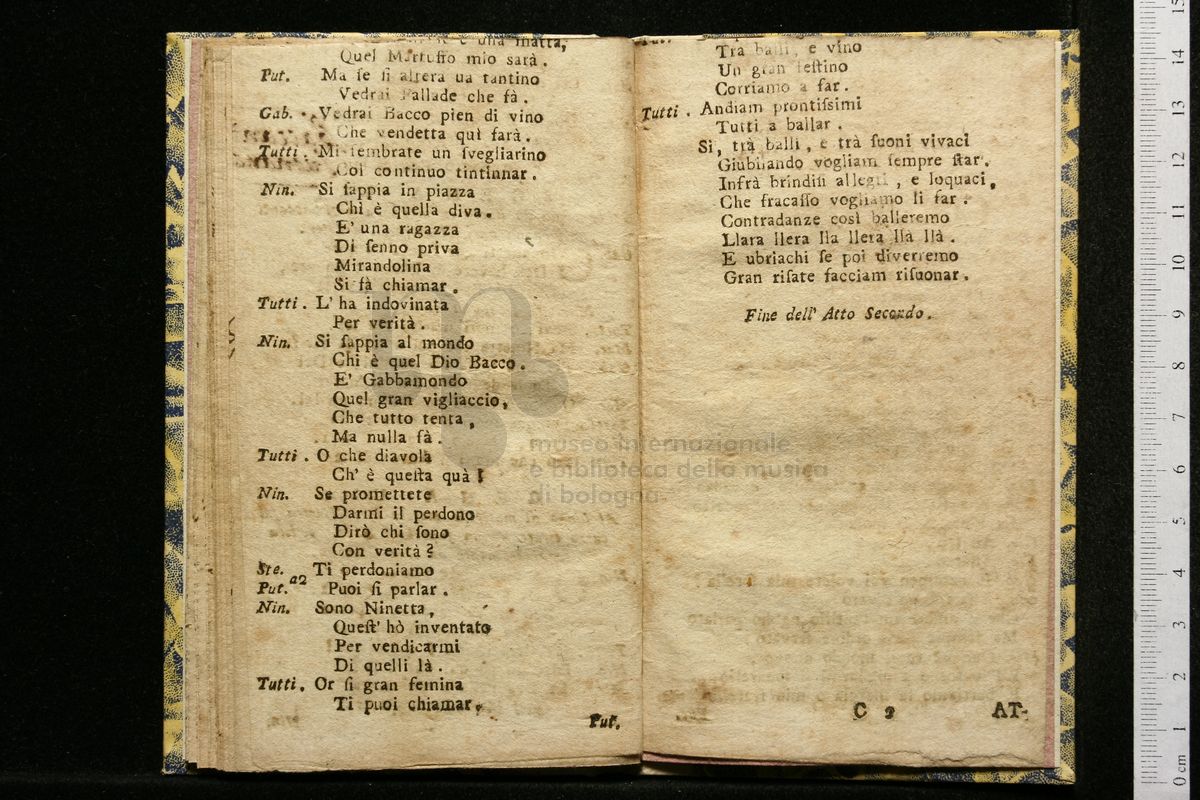 è una matta,
Quel Martuffo mio sarà.
Put. Ma ſe ſi altera un tantino
Vedrai Pallade che fà.
Gab. Vedrai Bacco pien di vino
Che vendetta quì farà.
Tutti. Mi ſembrate un ſvegliarino
Col continuo tintinnar.
Nin. Si ſappia in piazza
Chì è quella diva.
E' una ragazza
Di ſenno priva
Mirandolina
Si fà chiamar.
Tutti. L' ha indovinata
Per verità.
Nin. Si ſappia al mondo
Chi è quel Dio Bacco.
E' Gabbamondo
Quel gran vigliaccio,
Che tutto tenta,
Ma nulla fà.
Tutti. O che diavola
Ch' è queſta quà!
Nin. Se promettete
Darmi il perdono
Dirò chi ſono
Con verità?
Ste. Ti perdoniamo
a2
Put. Puoi ſi parlar.
Nin. Sono Ninetta,
Queſt' hò inventato
Per vendicarmi
Di quelli là.
Tutti. Or ſi gran femina
Ti puoi chiamar.
Put.
Tra balli, e vino
Un gran feſtino
Corriamo a far.
Tutti. Andiam prontiſſimi
Tutti a ballar.
Sì, trà balli, e trà ſuoni vivaci
Giubilando vogliam ſempre ſtar.
Infrà brindiſi allegri, e loquaci,
Che fracaſſo vogliamo lì far.
Contradanze così balleremo
Llara llera lla llera llà llà.
E ubriachi ſe poi diverremo
Gran riſate facciam riſuonar.
Fine dell' Atto Secondo.
C 2 AT-
museo internazionale
e biblioteca della musica
di bologna
0 cm 1 2 3 4 5 6 7 8 9 10 11 12 13 14 15